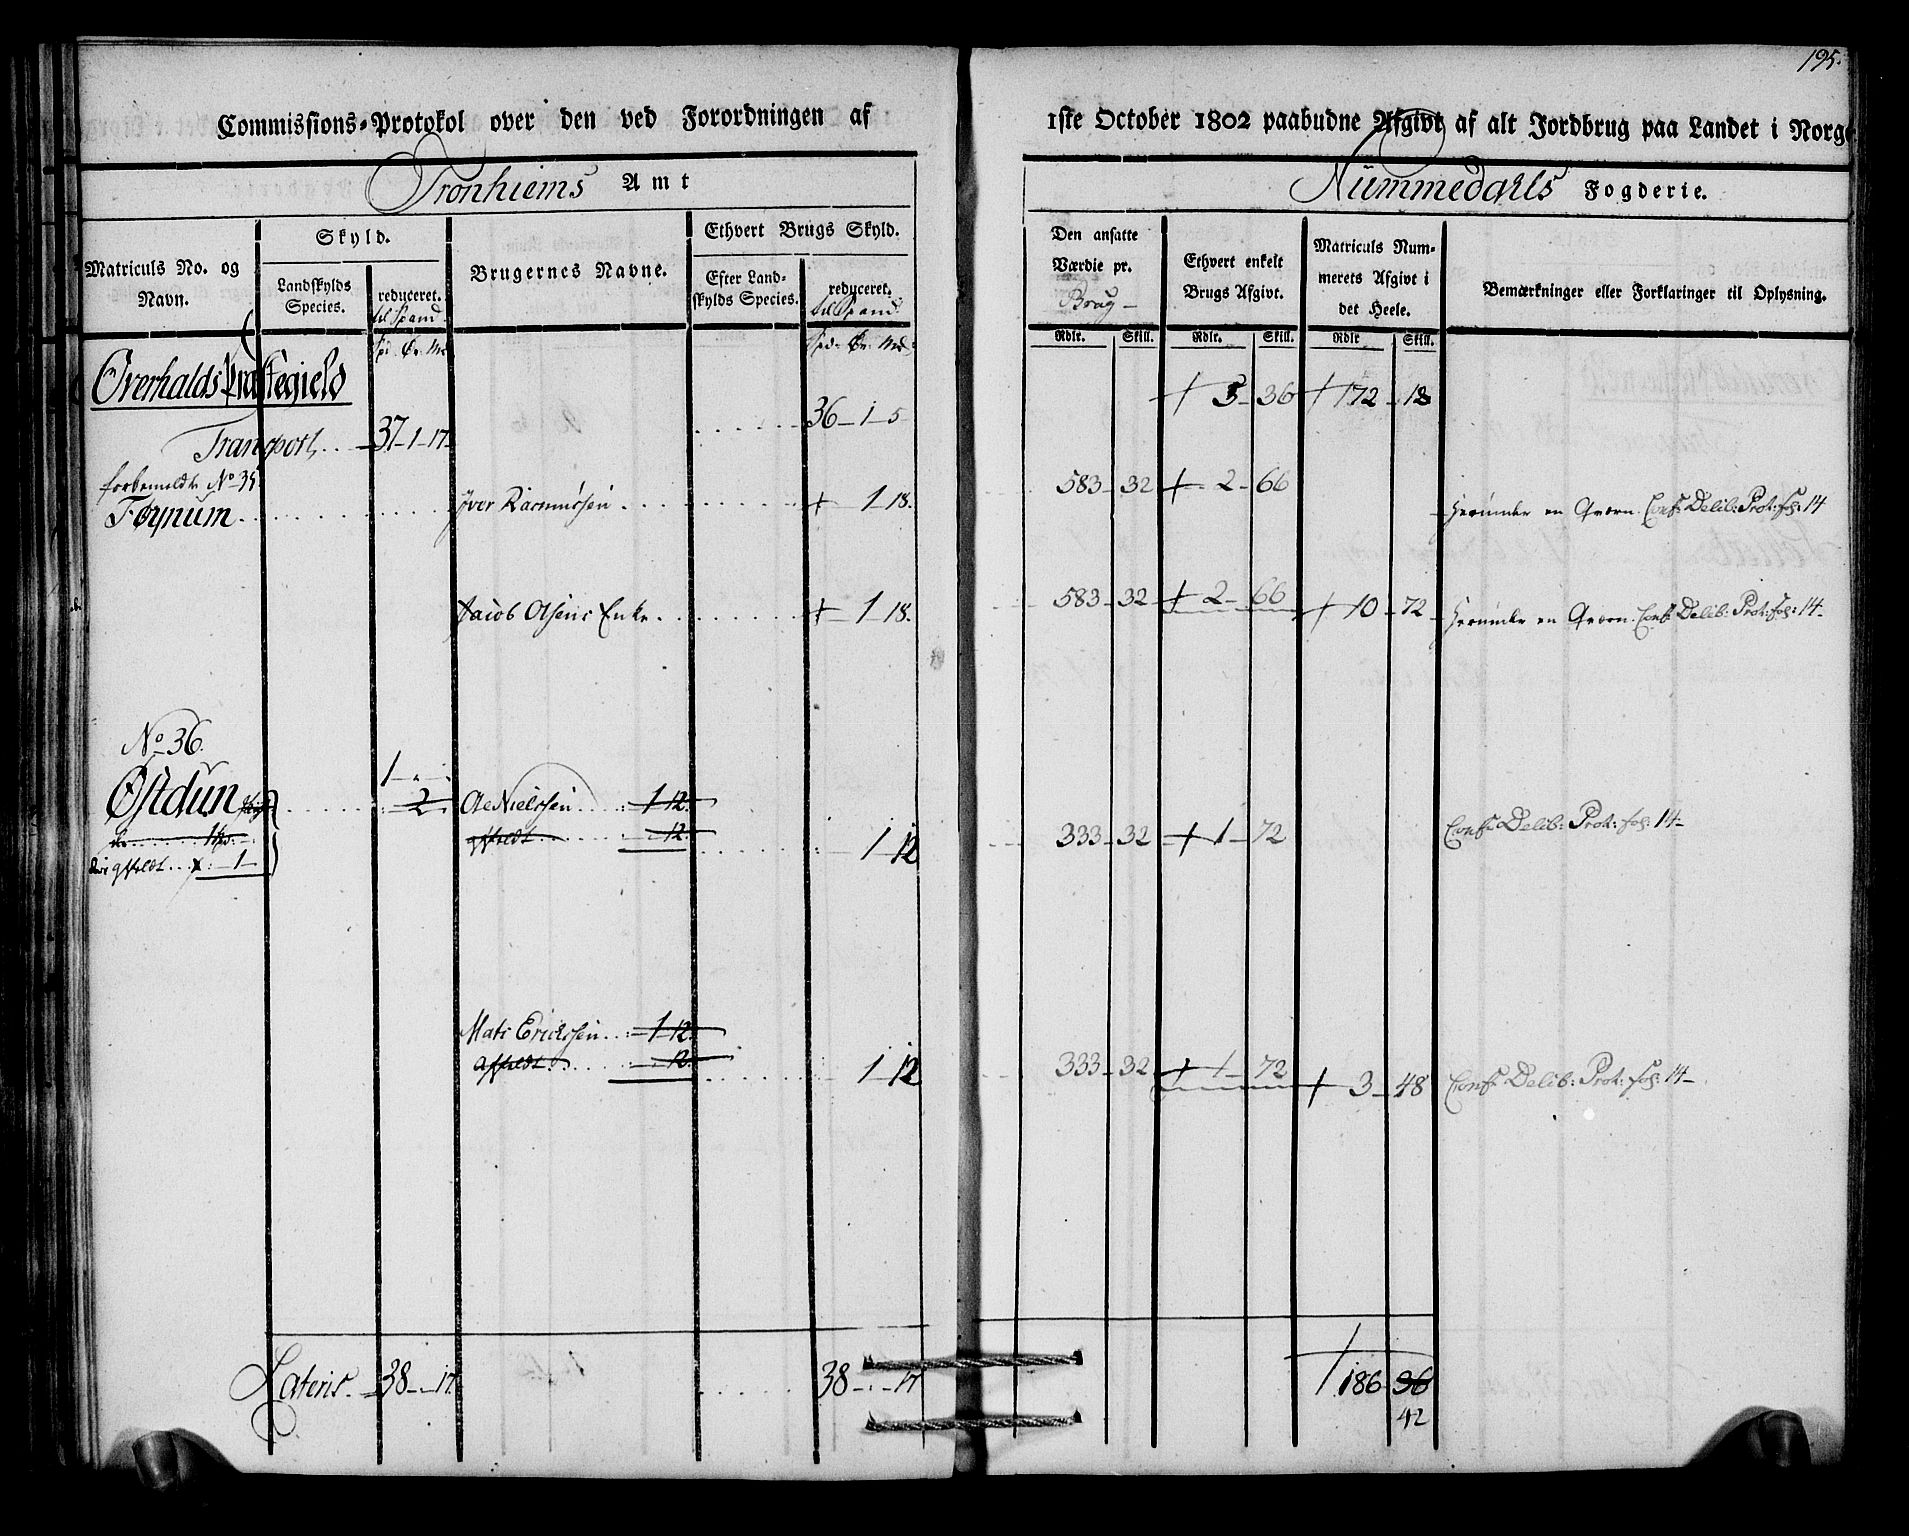 195.
Commissions-Protokol over den ved Forordningen af
1ste October 1802 paabudne Afgivt af alt Jordbrug paa Landet i Norge
Tronhiems Amt
Nummedahls Fogderie.
Matriculs No. og Navn.
Skyld.
Landskylds Species.
reduceret.
til Spand
Brugernes Navne.
Ethvert Brugs Skyld.
Efter Landskylds Species.
reduceret.
til Spand
Den ansatte Værdie pr.
Brug
Ethvert enkelt Brugs Afgivt.
Matriculs Nummerets Afgivt i det Heele.
Bemærkninger eller Forklaringer til Oplysning.
Spd. Ør. Mk. Spd. Ør. Mk. Rdlr. Skill. Rdlr. Skill. Rdlr Skill.
Overhalds Præstegield
3 - 36 172 - 18
Transport, .. 37 - 1 - 17. . . . . . 36 - 1 - 5
forbemeldte No 35
Föynum . . . . . . Iver Rasmussen . . . . . 1 - 18. 583 - 32 2 - 66 Herunder en Qværn. Conf: Delib: Prot: fol: 14
Jacob Olsens Enke . . . . . 1 - 18. 583 - 32 2 - 66 10 - 72 Herunder en Qværn. Conf: Delib: Prot: fol: 14 -
No 36.
1 - " -
Östdun . . . . . 2. Ole Nielssen . . . 1 - 12.
1 Sp. affeldt . . . 12. 1 - 12 333 - 32 1 - 72 Conf: Delib: Prot: fol: 14 -
affeldt . . 1 -
Mats Erickssen . . 1 - 12.
affeldt . . . 12. 1 - 12 333 - 32 1 - 72 3 - 48 Conf: Delib: Prot: fol: 14 -
Lateris. 38 - " - 17. . . . . 38 - " - 17 186 36
42